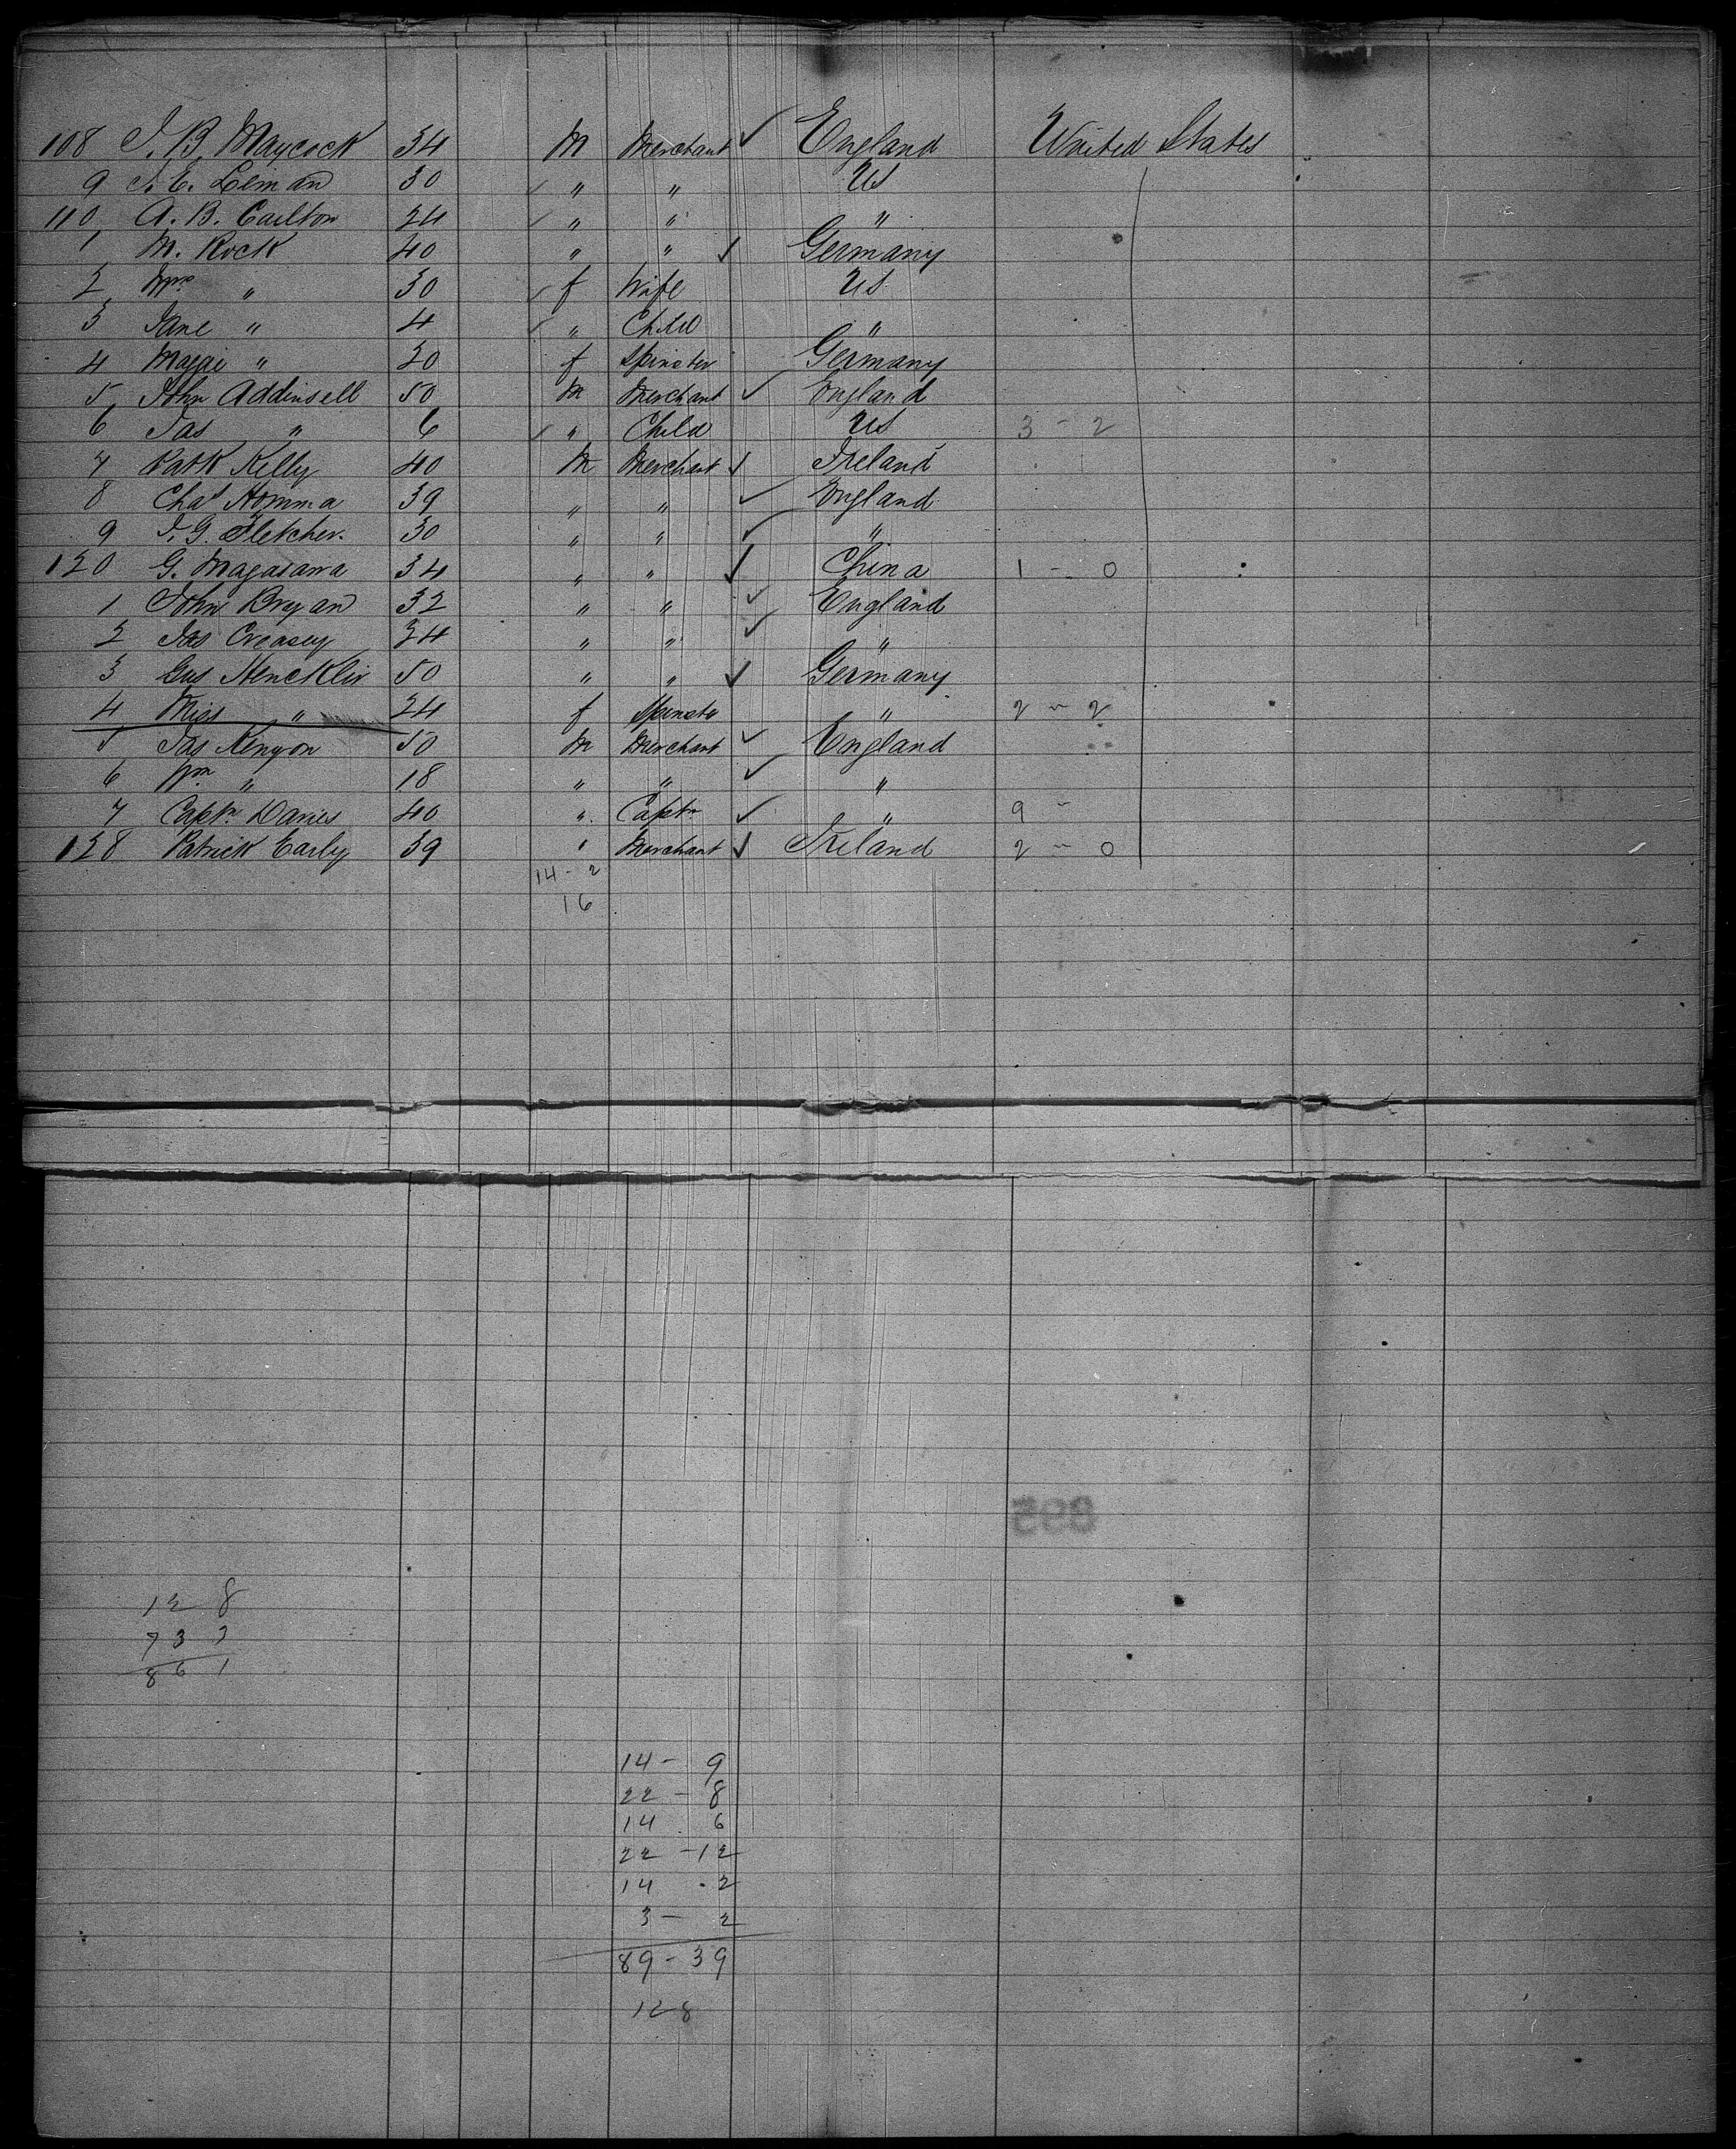 108 J. B. Maycock 34 M Merchant ✓ England United States
9 J. E. Leman 30 ✓ " " US
110 A. B. Carlton 24 ✓ " " "
1 M. Rock 40 " " ✓ Germany
2 Mrs " 30 ✓ f Wife US
3 Jane " 4 ✓ " Child "
4 Maggie " 20 f Spinster Germany
5 John Addinsell 50 M Merchant ✓ England
6 Jas " 6 ✓ " Child US 3 - 2
7 Patk Kelly 40 M Merchant ✓ Ireland
8 Chas Homma 39 " " ✓ England
9 J. G. Fletcher 30 " " ✓ "
120 G. Magasawa 34 " " ✓ China 1 - 0
1 John Bryan 32 " " ✓ England
2 Jas Creasey 34 " " ✓ "
3 Gus Hencklir 50 " " ✓ Germany
4 Miss " 24 f Spinstr " 2 - 2
5 Jas Kenyon 50 M Merchant ✓ England
6 Wm " 18 " " ✓ "
7 Captn Davies 40 " Captn ✓ " 9 -
128 Patrick Early 39 " Merchant ✓ Ireland 2 - 0
14 - 2
16
895
128
733
861
14 - 9
22 - 8
14 6
22 - 12
14 . 2
3 - 2
89 - 39
128